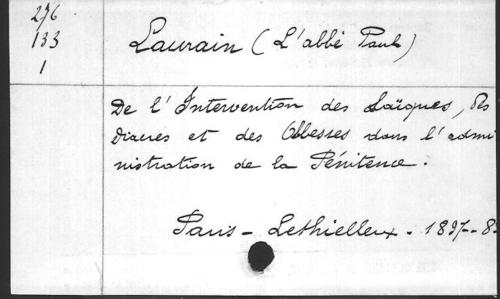 276
133
1
Laurain (L'abbé Paul)
De l'Intervention des Laïques, des
Diacres et des Abbesses dans l'admi
nistration de la Pénitence.
Paris - Lethielleux. 1897 - 8